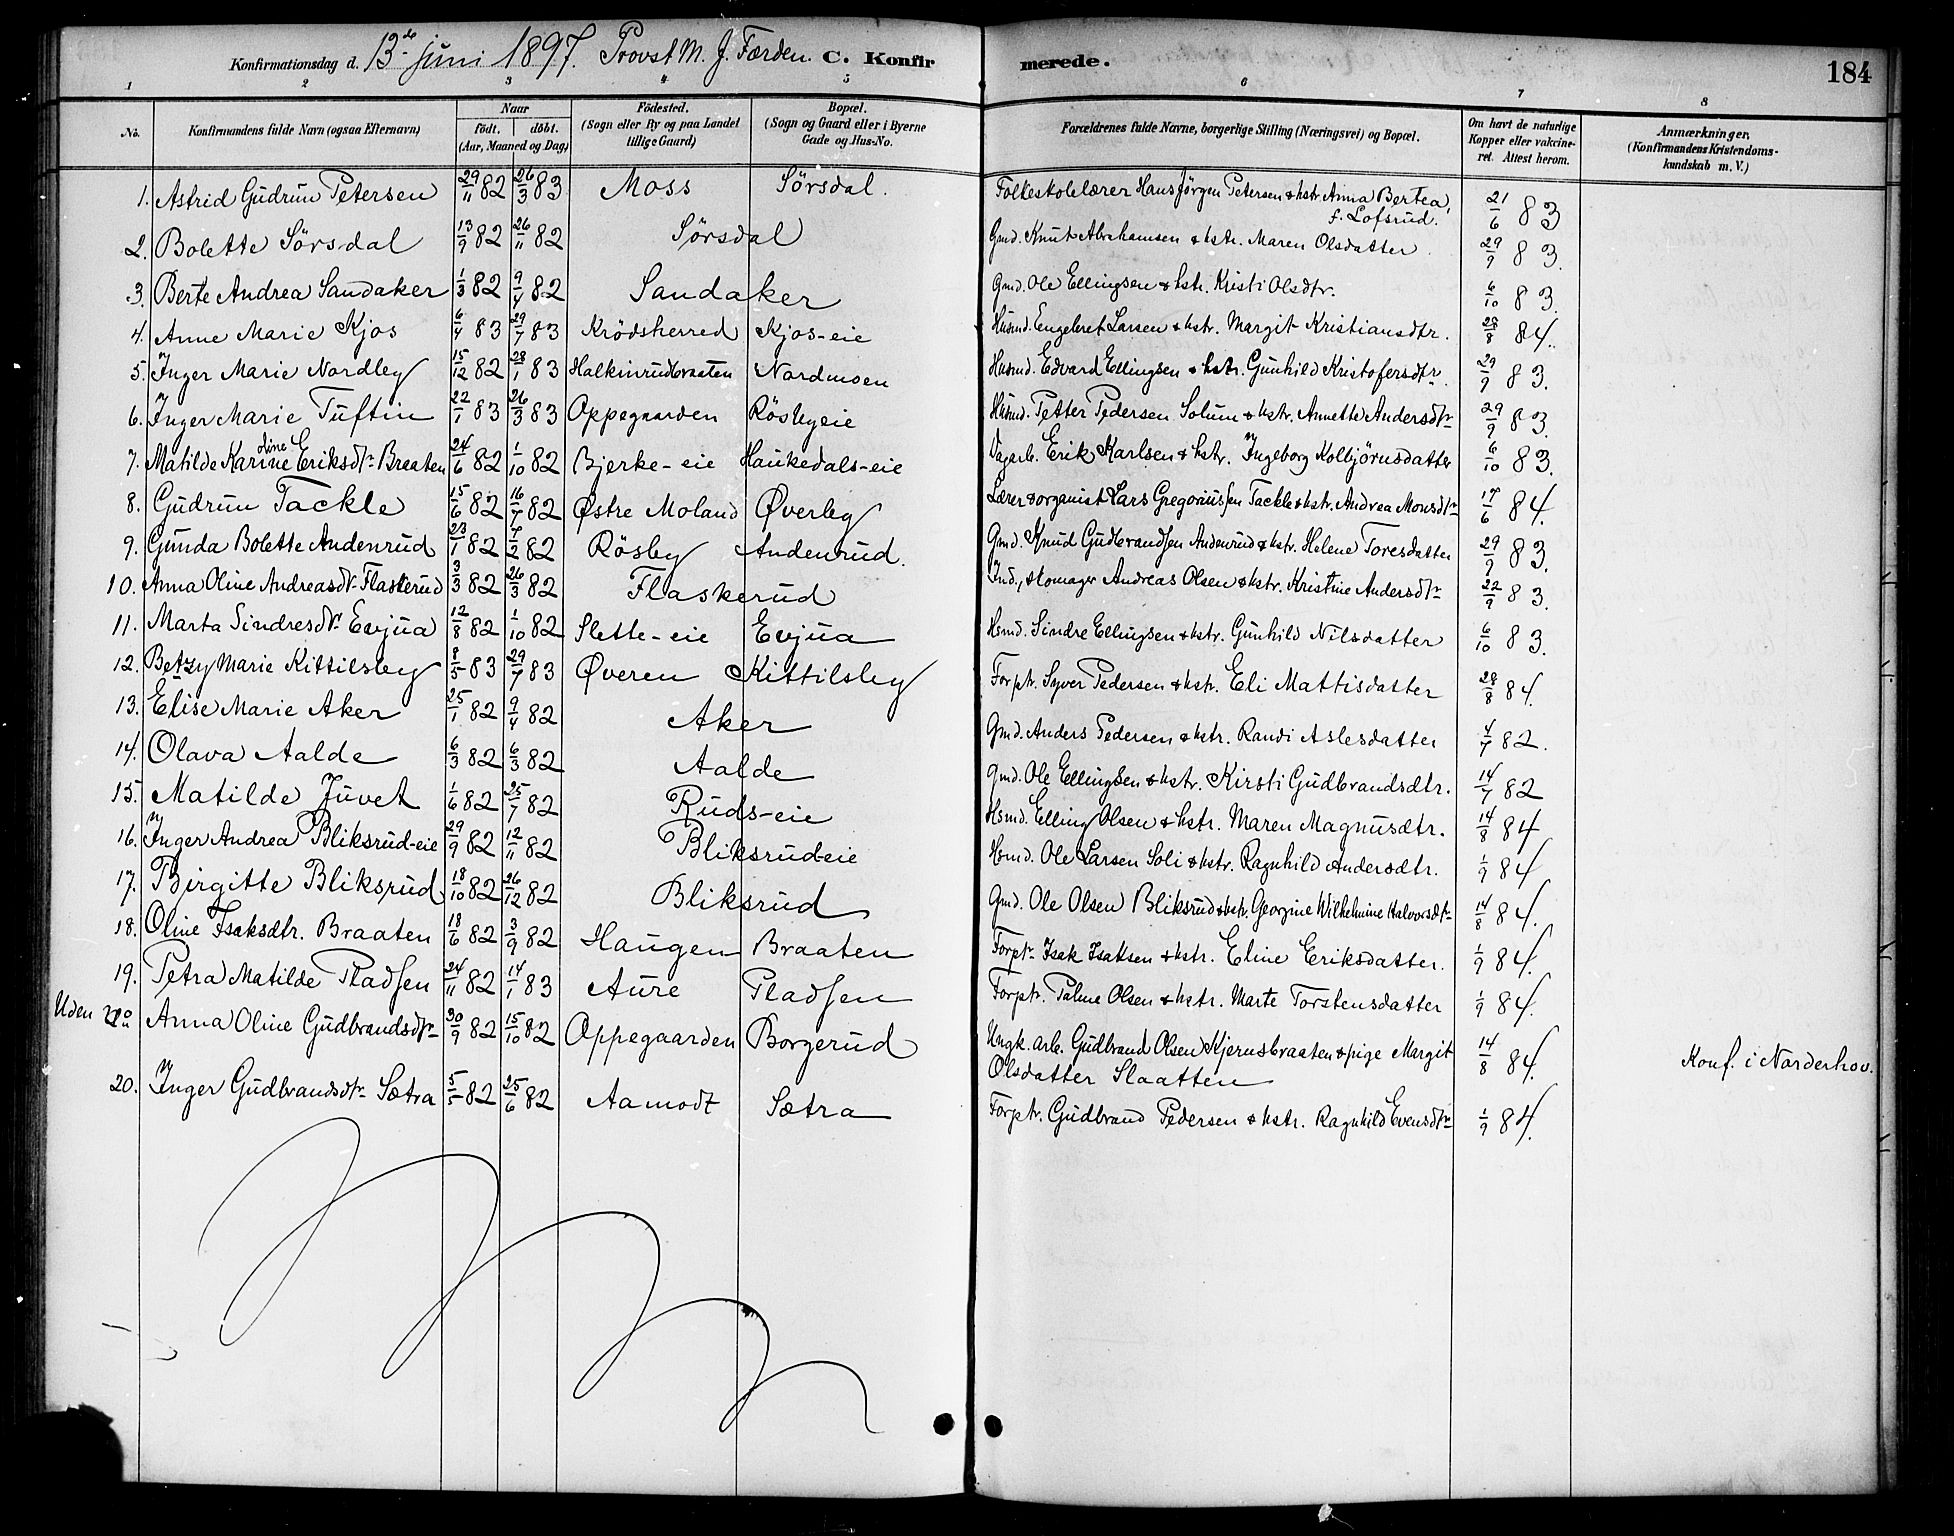 Konfirmationsdag d. 13de juni 1897. Provst M. J. Færden. C. Konfirmerede. 184
1 2 3 4 5 6 7 8
No. Konfirmandens fulde Navn (ogsaa Efternavn) Naar født. døbt. (Aar, Maaned og Dag) Fødested. (Sogn eller By og paa Landet tillige Gaard) Bopæl. (Sogn og Gaard eller i Byerne Gade og Hus-No. Forældrenes fulde Navne, borgerlige Stilling (Næringsvei) og Bopæl. Om havt de naturlige Kopper eller vakcineret. Attest herom. Anmærkninger, (Konfirmandens Kristendomskundskab m. V.)
1. Astrid Gudrun Petersen 29/11 82 26/3 83 Moss Sörsdal. Folkeskolelærer Hans Jörgen Petersen & hstr. Anna Bertea, f. Lofsrud. 21/6 83
2. Bolette Sörsdal 13/9 82 26/11 82 Sörsdal Gmd. Knut Abrahamsen & hstr. Maren Olsdatter. 29/9 83.
3. Berte Andrea Sandaker 1/3 82 9/4 82 Sandaker Gmd. Ole Ellingsen & hstr. Kristi Olsdtr. 6/10 83
4. Anne Marie Kjos 6/4 83 29/7 83 Krödsherred Kjos-eie Husmd. Engebret Larsen & hstr. Margit Kristiansdtr. 28/8 84.
5. Inger Marie Nordley 15/12 82 28/1 83 Halkinrudbraaten Nordmoen Husmd. Edvard Ellingsen & hstr. Gunhild Kristofersdtr. 29/9 83.
6. Inger Marie Tuftin 22/1 83 26/3 83 Oppegaarden Rösbyeie Husmd. Petter Pedersen Solum & hstr. Annette Andersdtr 29/9 83.
7. Matilde Karine oline Eriksdtr Braaten 24/6 82 1/10 82 Bjerke-eie Haukedals-eie Vagarb. Erik Karlsen & hstr. Ingeborg Kolbjörnsdatter 6/10 83.
8. Gudrun Tackle 15/6 82 16/7 82 Østre Moland Øverby Lærer & organist Lars Gregoriussen Tackle & hstr. Andrea Monsdtr 17/6 84.
9. Gunda Bolette Andenrud 23/1 82 7/2 82 Rösby Andenrud. Gmd. Knud Gudbrandsen Andenrud & hstr. Helene Toresdatter 29/9 83.
10. Anna Oline Andreasdtr Flaskerud 3/3 82 26/3 82 Flaskerud Ind., skomager Andreas Olsen & hstr. Kristine Andersdtr 22/9 83.
11. Marta Sindresdtr Evjua 12/8 82 1/10 82 Slette-eie Evjua Hsmd. Sindre Ellingsen & hstr. Gunhild Nilsdatter 6/10 83.
12. Betzy Marie Kittilsby 8/5 83 29/7 83 Øveren Kittilsby Forptr. Syver Pedersen & hstr. Eli Mattisdatter 28/8 84.
13. Elise Marie Aker 25/1 82 9/4 82 Aker Gmd. Anders Pedersen & hstr. Randi Aslesdatter 4/7 82.
14. Olava Aalde 6/3 82 6/3 82 Aalde Gmd. Ole Ellingsen & hstr. Kirsti Gudbrandsdtr. 14/7 82
15. Matilde Juvet 1/6 82 25/7 82 Ruds-eie Hsmd. Elling Olsen & hstr. Maren Magnusdtr. 14/8 84
16. Inger Andrea Bliksrud-eie 29/9 82 12/11 82 Bliksrud-eie Hsmd. Ole Larsen Soli & hstr. Ragnhild Andersdtr. 1/9 84
17. Birgitte Bliksrud 18/10 82 26/12 82 Bliksrud Gmd. Ole Olsen Bliksrud & hstr. Georgine Wilhelmine Halvorsdtr 14/8 84.
18. Oline Isaksdtr. Braaten 18/6 82 3/9 82 Haugen Braaten Forptr Isak Isaksen & hstr. Eline Eriksdatter. 1/9 84.
19. Petra Matilde Pladsen 24/11 82 14/1 83 Aure Pladsen Forptr. Palme Olsen & hstr. Marte Torstensdatter 1/9 84.
Uden No Anna Oline Gudbrandsdtr 30/9 82 15/10 82 Oppegaarden Borgerud Ungk. arb. Gudbrand Olsen Kjernsbraaten & pige Margit Olsdatter Slaatten 14/8 84. Konf. i Norderhov.
20. Inger Gudbrandsdtr Sætra 5/5 82 25/6 82 Aamodt Sætra Forptr. Gudbrand Pedersen & hstr. Ragnhild Evensdtr 1/9 84.